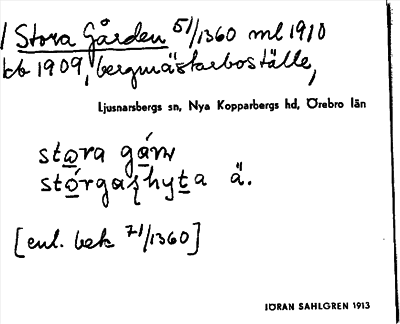 / Stora Gården 51/1360 ml 1910
kb 1909, bergmästarboställe,
Ljusnarsbergs sn, Nya Kopparbergs hd, Örebro län
stora
hyta ä.
[enl. bek 71/1360]
JÖRAN SAHLGREN 1913